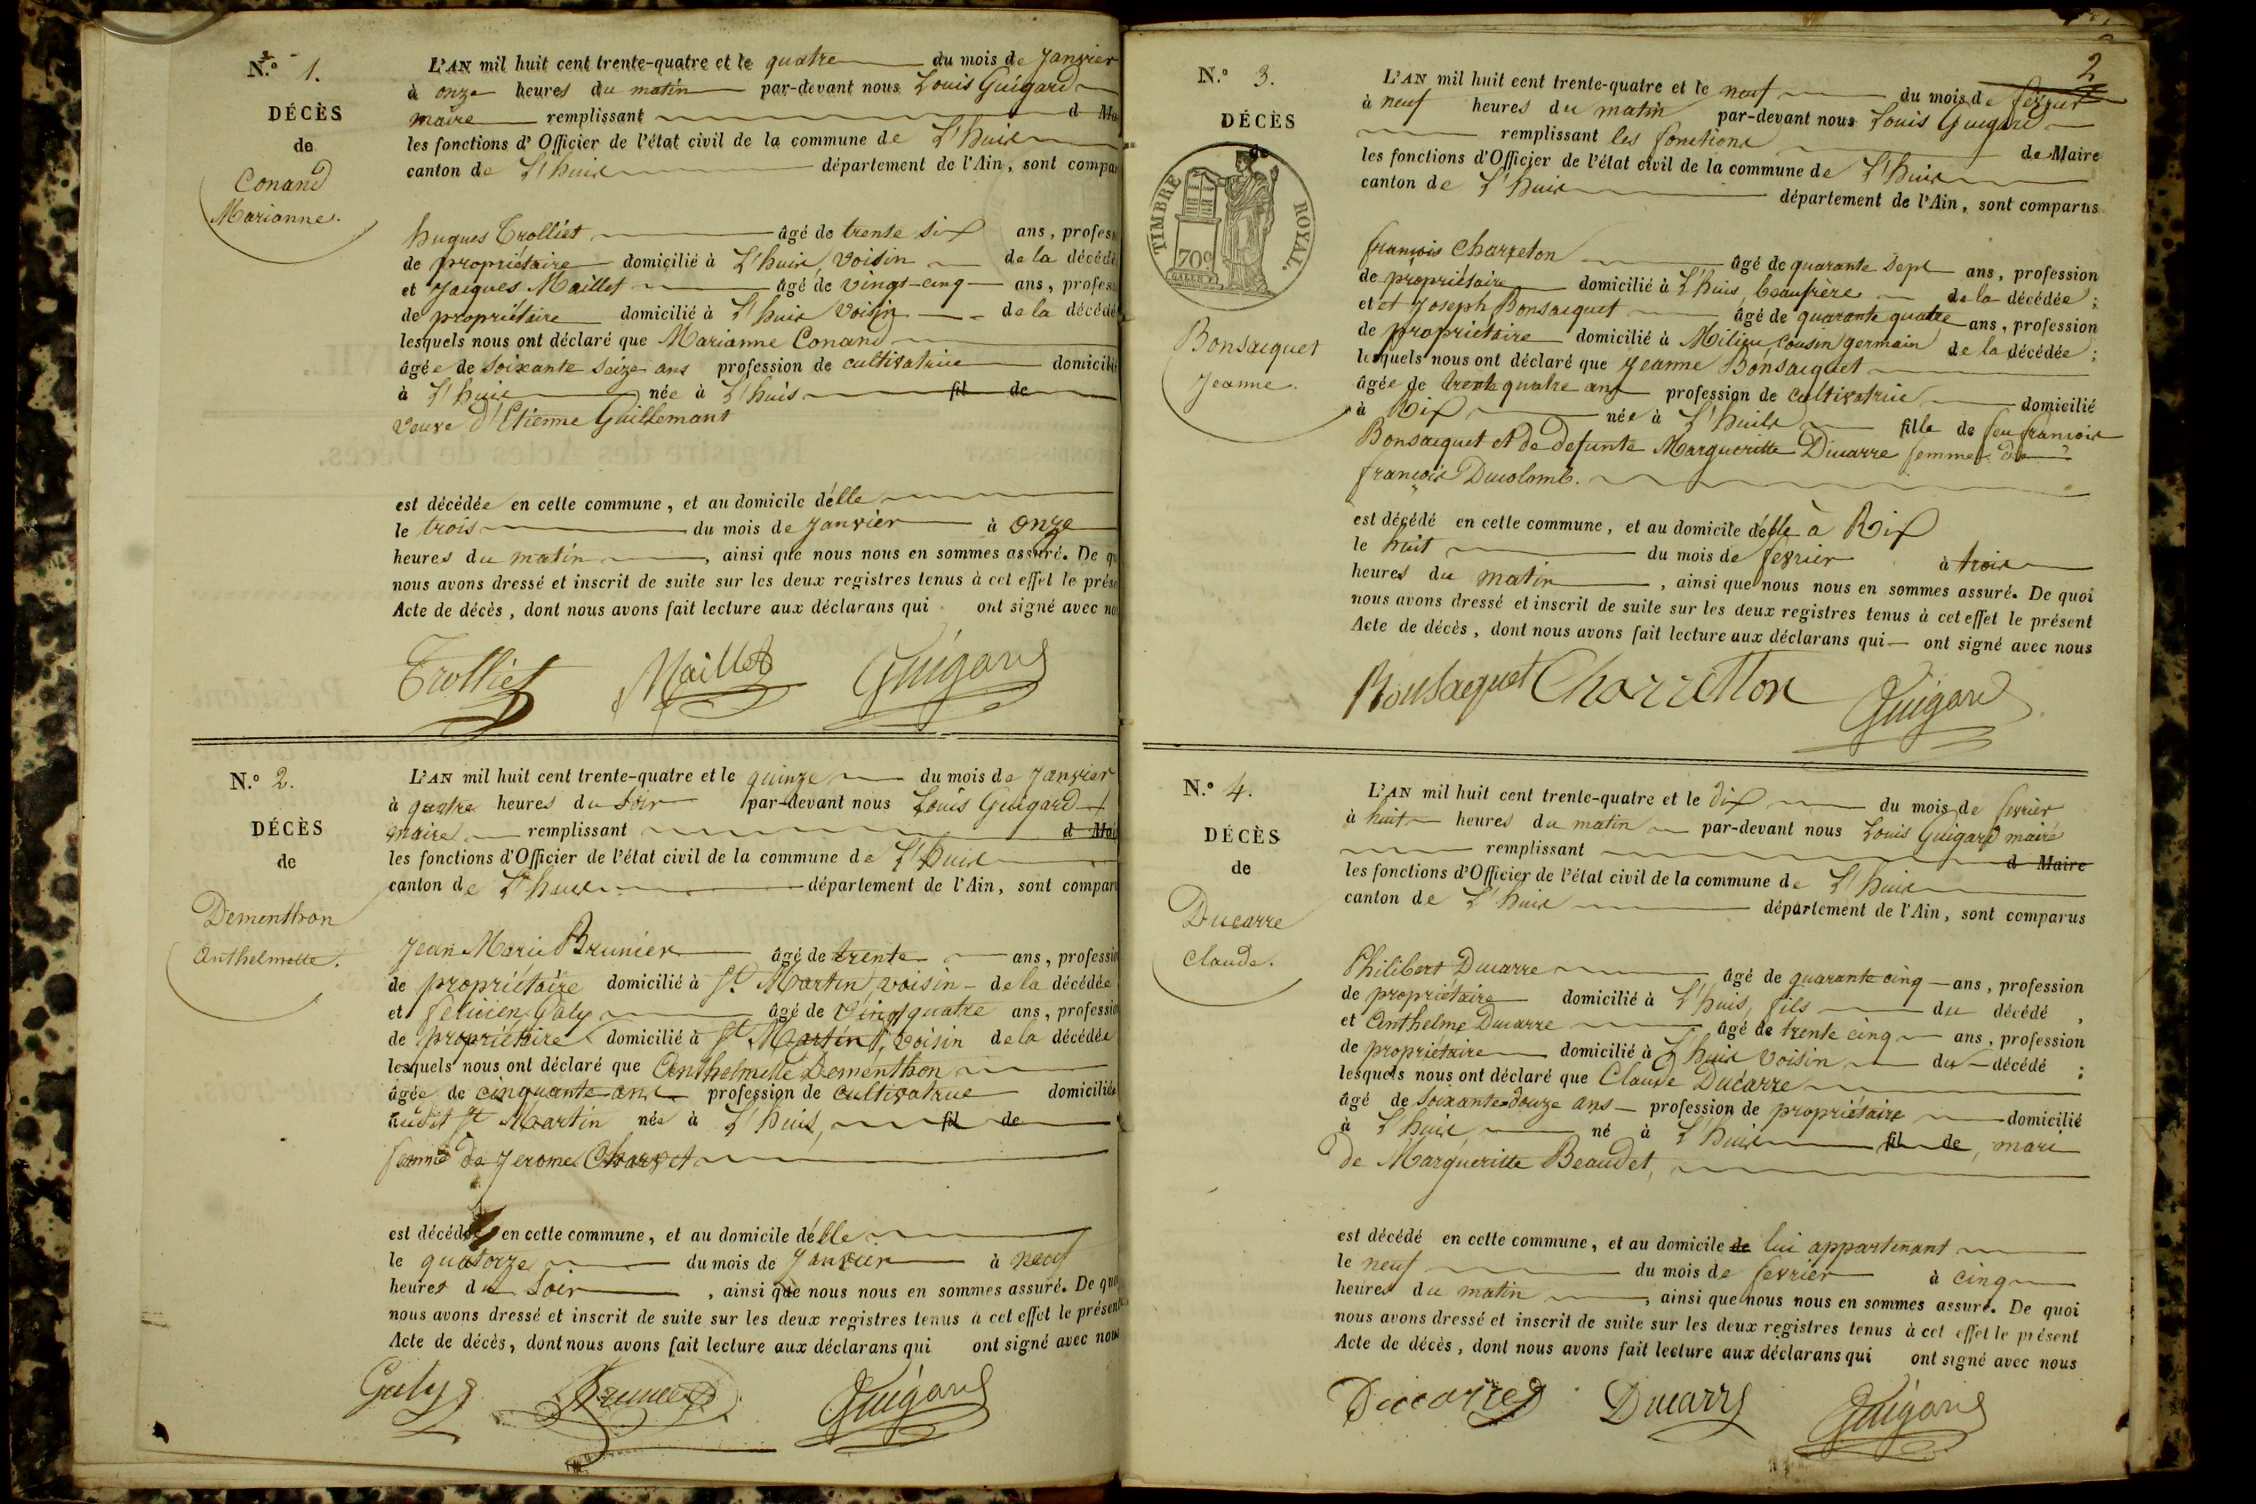 N.° 1.
DÉCÈS
de
Conand
Marianne.
L'AN mil huit cent trente-quatre et le quatre du mois de Janvier
à onze heures du matin par-devant nous Louis Guigard
maire remplissant d Ma
les fonctions d'Officier de l'état civil de la commune de L'huis
canton de L'huis département de l'Ain, sont compar
hugues Trolliet âgé de trente six ans, profess
de propriétaire domicilié à L'huis, voisin de la décédé
et Jacques Maillet âgé de vingt-cinq ans, profess
de propriétaire domicilié à L'huis voisin de la décédé
lesquels nous ont déclaré que Marianne Conand
âgée de soixante seize ans profession de cultivatrice domicilié
à L'huis née à L'huis fil de
veuve d'Etienne Guillemant
est décédée en cette commune, et au domicile d'elle
le trois du mois de Janvier à onze
heures du matin, ainsi que nous nous en sommes assuré. De qu
nous avons dressé et inscrit de suite sur les deux registres tenus à cet effet le prése
Acte de décès, dont nous avons fait lecture aux déclarans qui ont signé avec no
Trolliet Maillet Guigard
N.° 2.
DÉCÈS
de
Dementhon
Anthelmette.
L'AN mil huit cent trente-quatre et le quinze du mois de Janvier
à quatre heures du soir par-devant nous Louis Guigard
maire remplissant d Mai
les fonctions d'Officier de l'état civil de la commune de L'huis
canton de L'huis département de l'Ain, sont compar
Jean Marie Brunier âgé de trente ans, professio
de propriétaire domicilié à St. Martin, voisin de la décédée
et felicien Galy âgé de vingt quatre ans, professio
de propriétaire domicilié à St. Martin, voisin de la décédée
lesquels nous ont déclaré que Anthelmette Dementhon
âgée de cinquante ans profession de cultivatrice domiciliée
audit St Martin née à L'huis, fil de
femme de Jerome Charvet
est décédée en cette commune, et au domicile d'elle
le quatorze du mois de Janvier à neuf
heures du soir, ainsi que nous nous en sommes assuré. De quo
nous avons dressé et inscrit de suite sur les deux registres tenus à cet effet le présent
Acte de décès, dont nous avons fait lecture aux déclarans qui ont signé avec nous
Galy Brunier Guigard
2
N.° 3.
DÉCÈS
de
TIMBRE ROYAL.
70c
Bonsacquet
Jeanne.
L'AN mil huit cent trente-quatre et le neuf du mois de fevrier
à neuf heures du matin par-devant nous Louis Guigard
remplissant les fonctions de Maire
les fonctions d'Officier de l'état civil de la commune de L'huis
canton de L'huis département de l'Ain, sont comparus
françois Charreton âgé de quarante sept ans, profession
de propriétaire domicilié à L'huis, beaufrère de la décédée;
et et Joseph Bonsacquet âgé de quarante quatre ans, profession
de propriétaire domicilié à Milieu cousin germain de la décédée;
lesquels nous ont déclaré que Jeanne Bonsacquet
âgée de trente quatre ans profession de cultivatrice domicilié
à Rix née à L'huis fille de feu francois
Bonsacquet et de defunte Margueritte Ducarre femme de
françois Ducolomb.
est décédé en cette commune, et au domicile d'elle à Rix
le huit du mois de fevrier à trois
heures du matin, ainsi que nous nous en sommes assuré. De quoi
nous avons dressé et inscrit de suite sur les deux registres tenus à cet effet le présent
Acte de décès, dont nous avons fait lecture aux déclarans qui ont signé avec nous
Bonsacquet Charretton Guigard
N.° 4.
DÉCÈS
de
Ducarre
Claude.
L'AN mil huit cent trente-quatre et le dix du mois de fevrier
à huit heures du matin par-devant nous Louis Guigard maire
remplissant d Maire
les fonctions d'Officier de l'état civil de la commune de L'huis
canton de L'huis département de l'Ain, sont comparus
Philibert Ducarre âgé de quarante cinq ans, profession
de propriétaire domicilié à L'huis, fils du décédé,
et Anthelme Ducarre âgé de trente cinq ans, profession
de propriétaire domicilié à L'huis voisin du décédé;
lesquels nous ont déclaré que Claude Ducarre
âgé de soixante douze ans profession de propriétaire domicilié
à L'huis, né à L'huis fil de, mari
de Margueritte Beaudet,
est décédé en cette commune, et au domicile de lui appartenant
le neuf du mois de fevrier à cinq
heures du matin, ainsi que nous nous en sommes assuré. De quoi
nous avons dressé et inscrit de suite sur les deux registres tenus à cet effet le présent
Acte de décès, dont nous avons fait lecture aux déclarans qui ont signé avec nous
Ducarre Ducarre Guigard